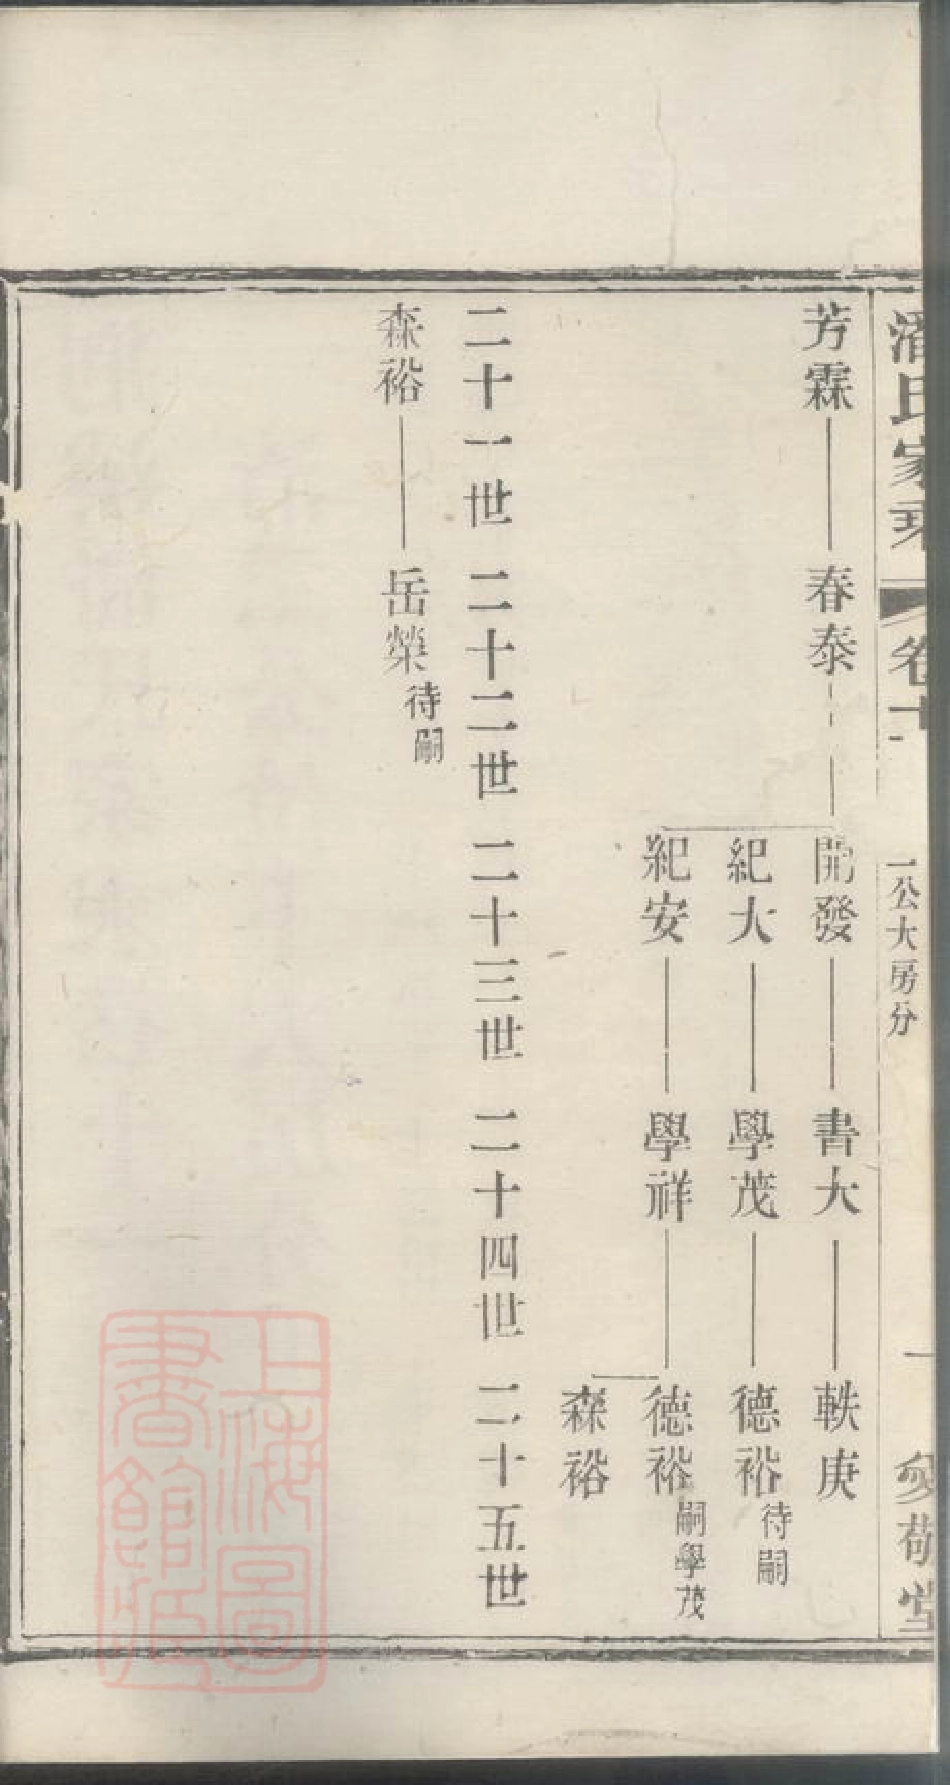 潘氏家乘
卷十
一公大房分
一
敘堂
芳霖 春泰 開發 書大 軼庚
紀大 學茂 德裕 待嗣
紀安 學祥 德裕 嗣學茂
森裕
二十一世 二十二世 二十三世 二十四世 二十五世
森裕 岳榮 待嗣
上海圖書館藏